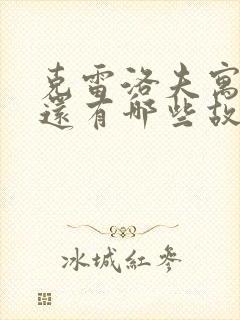 克雷洛夫寓
還有哪些故
冰城紅參